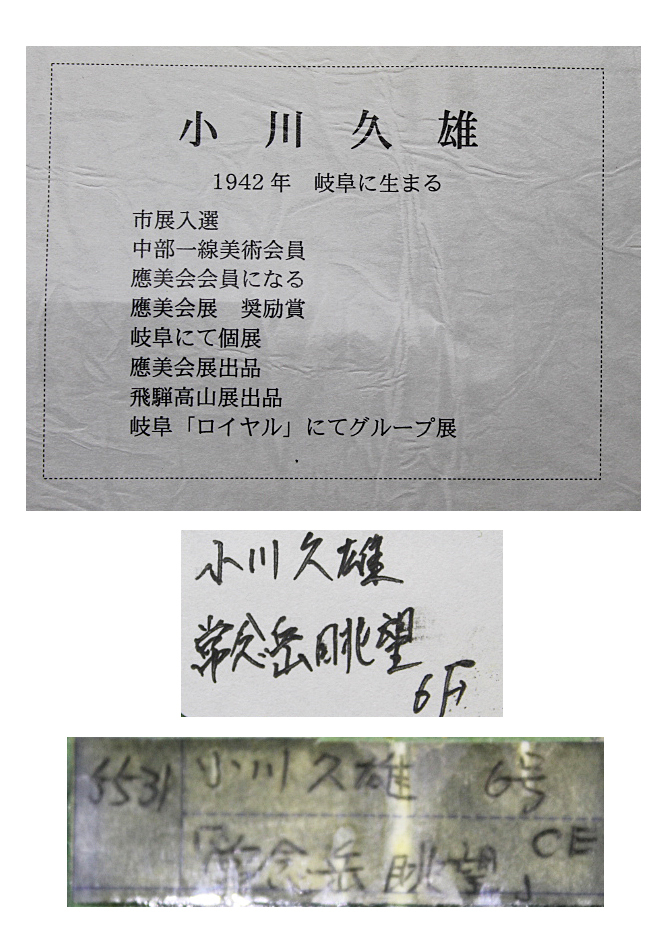 小川久雄
1942年　岐阜に生まる
市展入選
中部一線美術会員
應美会会員になる
應美会展　奨励賞
岐阜にて個展
應美会展出品
飛騨高山展出品
岐阜「ロイヤル」にてグループ展
小川久雄
常念岳眺望
6F
5531 小川久雄 6号
「常念岳眺望」 CE